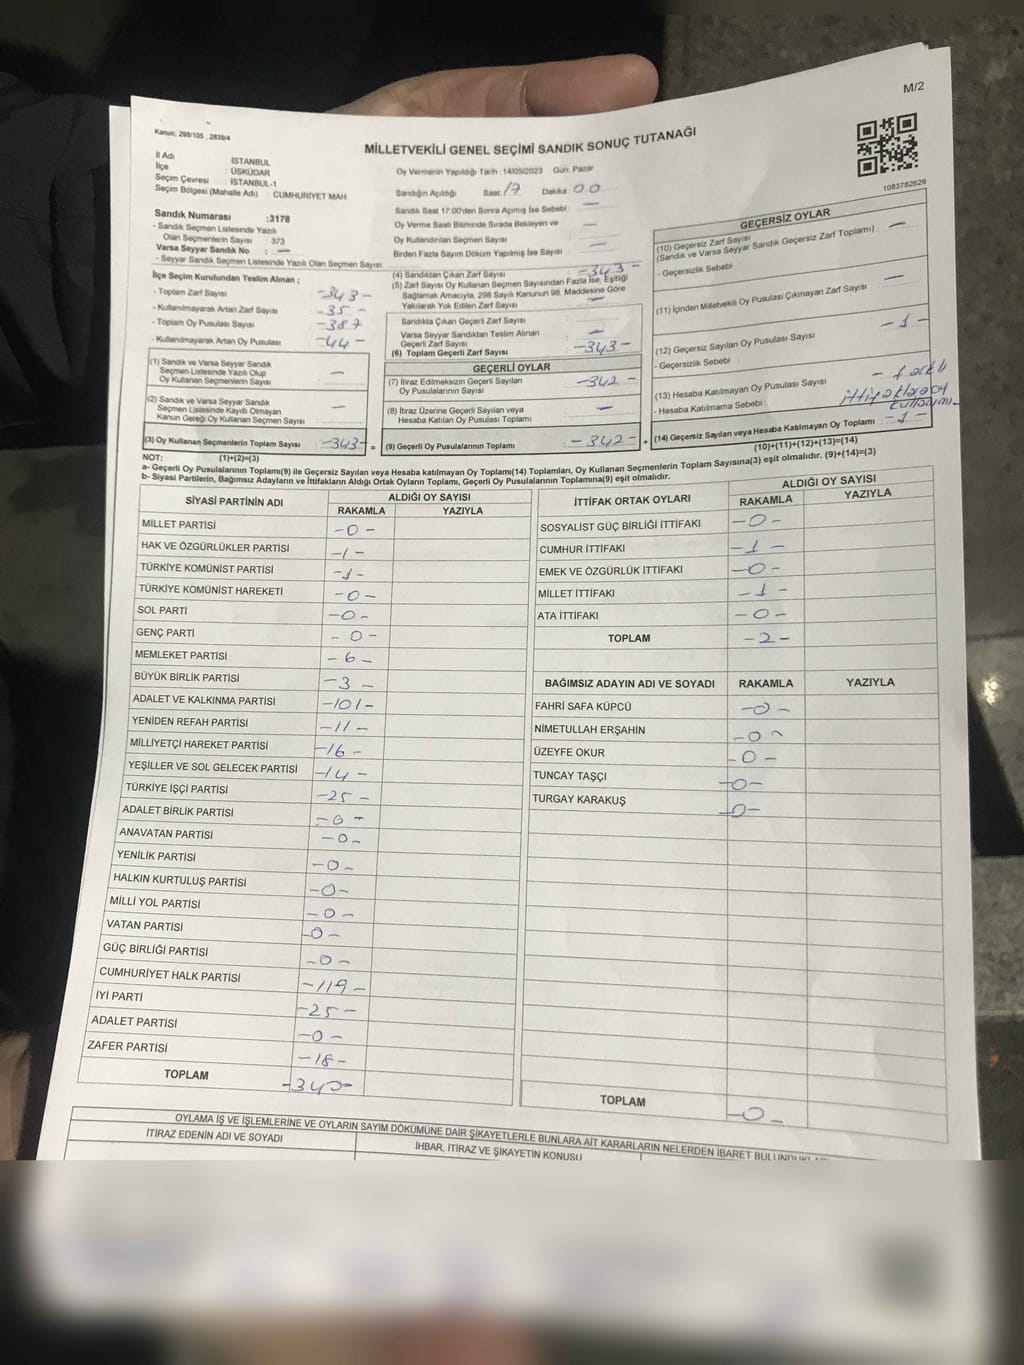 M/2
Kanun; 298/105 , 2839/4
MİLLETVEKİLİ GENEL SEÇİMİ SANDIK SONUÇ TUTANAĞI
İl Adı : İSTANBUL
İlçe : ÜSKÜDAR
Seçim Çevresi : İSTANBUL-1
Seçim Bölgesi (Mahalle Adı) : CUMHURİYET MAH
Oy Vermenin Yapıldığı Tarih : 14/05/2023 Gün: Pazar
Sandığın Açıldığı Saat : 17 Dakika : 00
Sandık Saat 17:00'den Sonra Açılmış İse Sebebi : —
Oy Verme Saati Bitiminde Sırada Bekleyen ve
Oy Kullandırılan Seçmen Sayısı —
Birden Fazla Sayım Döküm Yapılmış İse Sayısı : —
1083782629
Sandık Numarası :3178
- Sandık Seçmen Listesinde Yazılı
Olan Seçmenlerin Sayısı : 373
Varsa Seyyar Sandık No : —
- Seyyar Sandık Seçmen Listesinde Yazılı Olan Seçmen Sayısı
İlçe Seçim Kurulundan Teslim Alınan ;
- Toplam Zarf Sayısı -343-
- Kullanılmayarak Artan Zarf Sayısı -35-
- Toplam Oy Pusulası Sayısı -387
- Kullanılmayarak Artan Oy Pusulası -44-
(1) Sandık ve Varsa Seyyar Sandık
Seçmen Listesinde Yazılı Olup
Oy Kullanan Seçmenlerin Sayısı —
(2) Sandık ve Varsa Seyyar Sandık
Seçmen Listesinde Kayıtlı Olmayan
Kanun Gereği Oy Kullanan Seçmen Sayısı —
(3) Oy Kullanan Seçmenlerin Toplam Sayısı -343- =
(1)+(2)=(3)
(4) Sandıktan Çıkan Zarf Sayısı -343-
(5) Zarf Sayısı Oy Kullanan Seçmen Sayısından Fazla İse, Eşitliği
Sağlamak Amacıyla, 298 Sayılı Kanunun 98. Maddesine Göre
Yakılarak Yok Edilen Zarf Sayısı —
Sandıkta Çıkan Geçerli Zarf Sayısı
Varsa Seyyar Sandıktan Teslim Alınan
Geçerli Zarf Sayısı —
(6) Toplam Geçerli Zarf Sayısı -343-
GEÇERLİ OYLAR
(7) İtiraz Edilmeksizin Geçerli Sayılan
Oy Pusulalarının Sayısı -342-
(8) İtiraz Üzerine Geçerli Sayılan veya
Hesaba Katılan Oy Pusulası Toplamı —
(9) Geçerli Oy Pusulalarının Toplamı -342- +
GEÇERSİZ OYLAR
(10) Geçersiz Zarf Sayısı
(Sandık ve Varsa Seyyar Sandık Geçersiz Zarf Toplamı) : —
- Geçersizlik Sebebi
(11) İçinden Milletvekili Oy Pusulası Çıkmayan Zarf Sayısı —
(12) Geçersiz Sayılan Oy Pusulası Sayısı -1-
- Geçersizlik Sebebi :
(13) Hesaba Katılmayan Oy Pusulası Sayısı
- Hesaba Katılmama Sebebi :
(14) Geçersiz Sayılan veya Hesaba Katılmayan Oy Toplamı -1-
(10)+(11)+(12)+(13)=(14)
NOT:
a- Geçerli Oy Pusulalarının Toplamı(9) ile Geçersiz Sayılan veya Hesaba katılmayan Oy Toplamı(14) Toplamları, Oy Kullanan Seçmenlerin Toplam Sayısına(3) eşit olmalıdır. (9)+(14)=(3)
b- Siyasi Partilerin, Bağımsız Adayların ve İttifakların Aldığı Oyların Toplamı, Geçerli Oy Pusulalarının Toplamına(9) eşit olmalıdır.
SİYASİ PARTİNİN ADI
ALDIĞI OY SAYISI
RAKAMLA YAZIYLA
MİLLET PARTİSİ -0-
HAK VE ÖZGÜRLÜKLER PARTİSİ -1-
TÜRKİYE KOMÜNİST PARTİSİ -1-
TÜRKİYE KOMÜNİST HAREKETİ -0-
SOL PARTİ -0-
GENÇ PARTİ -0-
MEMLEKET PARTİSİ -6-
BÜYÜK BİRLİK PARTİSİ -3-
ADALET VE KALKINMA PARTİSİ -101-
YENİDEN REFAH PARTİSİ -11-
MİLLİYETÇİ HAREKET PARTİSİ -16-
YEŞİLLER VE SOL GELECEK PARTİSİ -14-
TÜRKİYE İŞÇİ PARTİSİ -25-
ADALET BİRLİK PARTİSİ -0-
ANAVATAN PARTİSİ -0-
YENİLİK PARTİSİ -0-
HALKIN KURTULUŞ PARTİSİ -0-
MİLLİ YOL PARTİSİ -0-
VATAN PARTİSİ -0-
GÜÇ BİRLİĞİ PARTİSİ -0-
CUMHURİYET HALK PARTİSİ -119-
İYİ PARTİ -25-
ADALET PARTİSİ -0-
ZAFER PARTİSİ -18-
TOPLAM -340-
İTTİFAK ORTAK OYLARI
ALDIĞI OY SAYISI
RAKAMLA YAZIYLA
SOSYALİST GÜÇ BİRLİĞİ İTTİFAKI -0-
CUMHUR İTTİFAKI -1-
EMEK VE ÖZGÜRLÜK İTTİFAKI -0-
MİLLET İTTİFAKI -1-
ATA İTTİFAKI -0-
TOPLAM -2-
BAĞIMSIZ ADAYIN ADI VE SOYADI RAKAMLA YAZIYLA
FAHRİ SAFA KÜPCÜ -0-
NİMETULLAH ERŞAHİN -0-
ÜZEYFE OKUR -0-
TUNCAY TAŞÇI -0-
TURGAY KARAKUŞ -0-
TOPLAM -0-
OYLAMA İŞ VE İŞLEMLERİNE VE OYLARIN SAYIM DÖKÜMÜNE DAİR ŞİKAYETLERLE BUNLARA AİT KARARLARIN NELERDEN İBARET
İTİRAZ EDENİN ADI VE SOYADI
İHBAR, İTİRAZ VE ŞİKAYETİN KONUSU